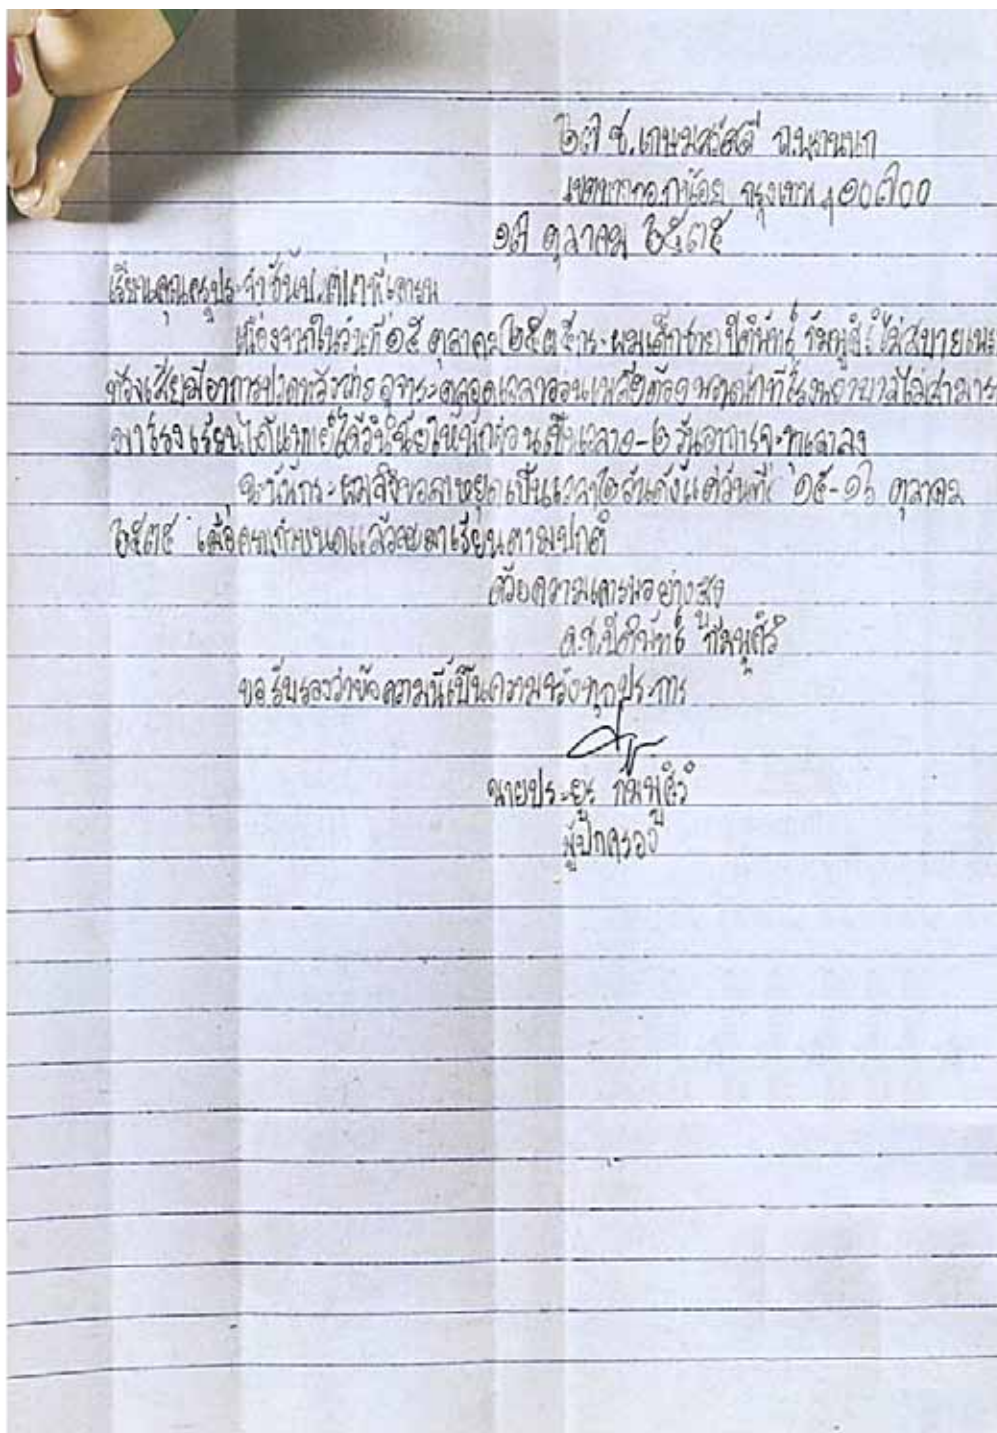 ๒๗ ซ.เกษมสวัสดี ถ.
เขตบางกอกน้อย กรุงเทพฯ ๑๐๗๐๐
๑๗ ตุลาคม ๒๕๓๕
เรียนคุณครูประจำชั้นป. ที่เคารพ
เนื่องจากในวันที่ ๑๕ ตุลาคม ๒๕๓๕ กระผมเด็กชาย ปิตินัทธ์ ไม่สบาย
ท้องเสียมีอาการปวดท้อง อุจจาระตลอดเวลาอ่อนเพลียต้อง ที่โรงพยาบาลไม่สามารถ
มาโรงเรียนได้แพทย์ได้วินิจฉัยให้พักผ่อนเป็นเวลา ๑-๒ วันอาการจะทุเลาลง
ฉะนั้นกระผมจึงขอลาหยุดเป็นเวลา ๒ วันตั้งแต่วันที่ ๑๕-๑๖ ตุลาคม
๒๕๓๕ เมื่อครบกำหนดแล้วจะมาเรียนตามปกติ
ด้วยความเคารพอย่างสูง
ด.ช.ปิตินัทธ์ กัมพูศิริ
ขอรับรองว่าข้อความนี้เป็นความจริงทุกประการ
นายประยูร กัมพูศิริ
ผู้ปกครอง